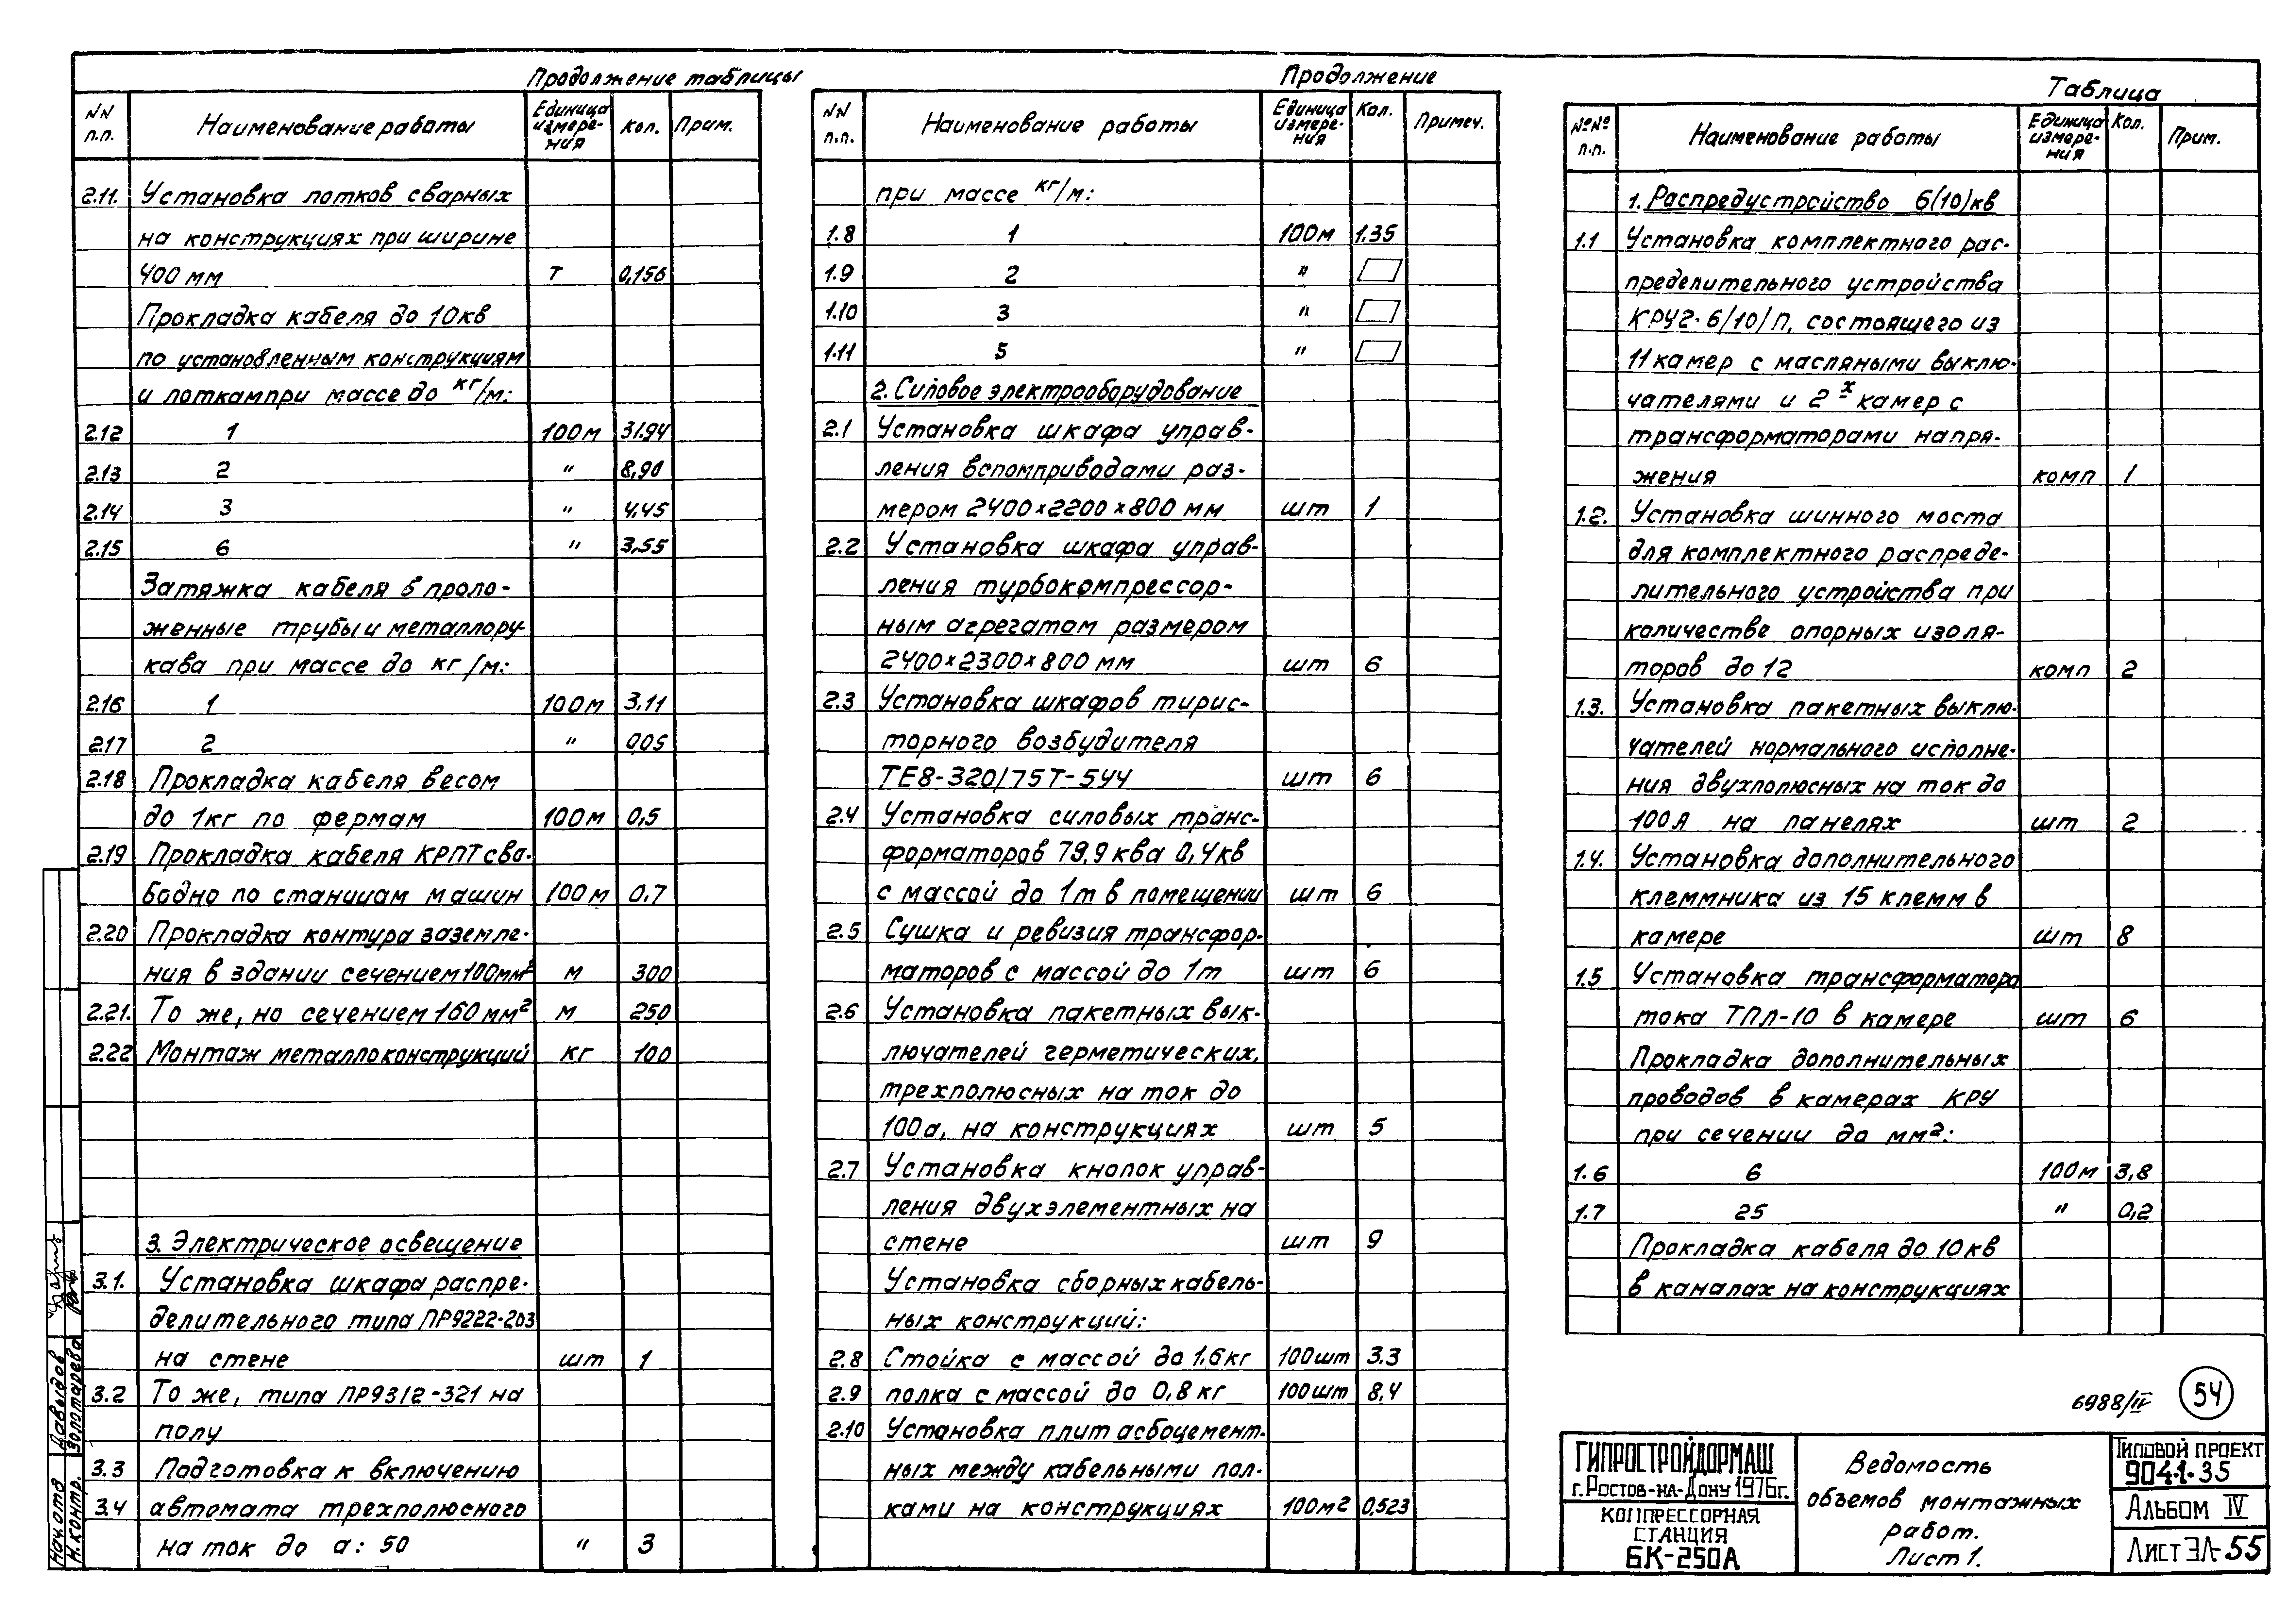 Продолжение таблицы
NN п.п. Наименование работы Единица измере-ния Кол. Прим.
2.11. Установка лотков сварных
на конструкциях при ширине
400 мм т 0,156
Прокладка кабеля до 10кв
по установленным конструкциям
и лоткам при массе до кг/м:
2.12 1 100м 31.94
2.13 2 " 8,90
2.14 3 " 4,45
2.15 6 " 3,55
Затяжка кабеля в проло-
женные трубы и металлору-
кава при массе до кг/м:
2.16 1 100м 3,11
2.17 2 " 0,05
2.18 Прокладка кабеля весом
до 1кг по фермам 100м 0,5
2.19 Прокладка кабеля КРПТ сво-
бодно по станицам машин 100м 0,7
2.20 Прокладка контура заземле-
ния в здании сечением 100мм² м 300
2.21. То же, но сечением 160 мм² м 250
2.22 Монтаж металлоконструкций кг 100
3. Электрическое освещение
3.1. Установка шкафа распре-
делительного типа ПР9222-203
на стене шт 1
3.2 То же, типа ПР9312-321 на
полу
3.3 Подготовка к включению
3.4 автомата трехполюсного
на ток до а: 50 " 3
Продолжение
NN п.п. Наименование работы Единица измере-ния Кол. Примеч.
при массе кг/м:
1.8 1 100м 1.35
1.9 2 "
1.10 3 "
1.11 5 "
2. Силовое электрооборудование
2.1 Установка шкафа управ-
ления вспомприводами раз-
мером 2400×2200×800 мм шт 1
2.2 Установка шкафа управ-
ления турбокомпрессор-
ным агрегатом размером
2400×2300×800 мм шт 6
2.3 Установка шкафов тирис-
торного возбудителя
ТЕ8-320/75Т-5УЧ шт 6
2.4 Установка силовых транс-
форматоров 79,9 ква 0,4кв
с массой до 1т в помещении шт 6
2.5 Сушка и ревизия трансфор-
маторов с массой до 1т шт 6
2.6 Установка пакетных вык-
лючателей герметических,
трехполюсных на ток до
100а, на конструкциях шт 5
2.7 Установка кнопок управ-
ления двухэлементных на
стене шт 9
Установка сборных кабель-
ных конструкций:
2.8 Стойка с массой до 1.6кг 100шт 3.3
2.9 полка с массой до 0,8 кг 100шт 8,4
2.10 Установка плит асбоцемент-
ных между кабельными пол-
ками на конструкциях 100м² 0,523
Таблица
№№ п.п. Наименование работы Единица измере-ния Кол. Прим.
1. Распредустройство 6(10)кв
1.1 Установка комплектного рас-
пределительного устройства
КРУ2-6/10/П, состоящего из
11 камер с масляными выклю-
чателями и 2х камер с
трансформаторами напря-
жения комп 1
1.2. Установка шинного моста
для комплектного распреде-
лительного устройства при
количестве опорных изоля-
торов до 12 комп 2
1.3. Установка пакетных выклю-
чателей нормального исполне-
ния двухполюсных на ток до
100А на панелях шт 2
1.4. Установка дополнительного
клеммника из 15 клемм в
камере шт 8
1.5 Установка трансформатора
тока ТПЛ-10 в камере шт 6
Прокладка дополнительных
проводов в камерах КРУ
при сечении до мм²:
1.6 6 100м 3,8
1.7 25 " 0,2
Прокладка кабеля до 10кв
в каналах на конструкциях
6988/IV 54
ГИПРОСТРОЙДОРМАШ
г. Ростов-на-Дону 1976г.
КОМПРЕССОРНАЯ
СТАНЦИЯ
6К-250А
Ведомость
объемов монтажных
работ.
Лист 1.
Типовой проект
904-1-35
Альбом IV
Лист ЭЛ-55
Нач.отд Давыдов
Н.контр. Золотарева